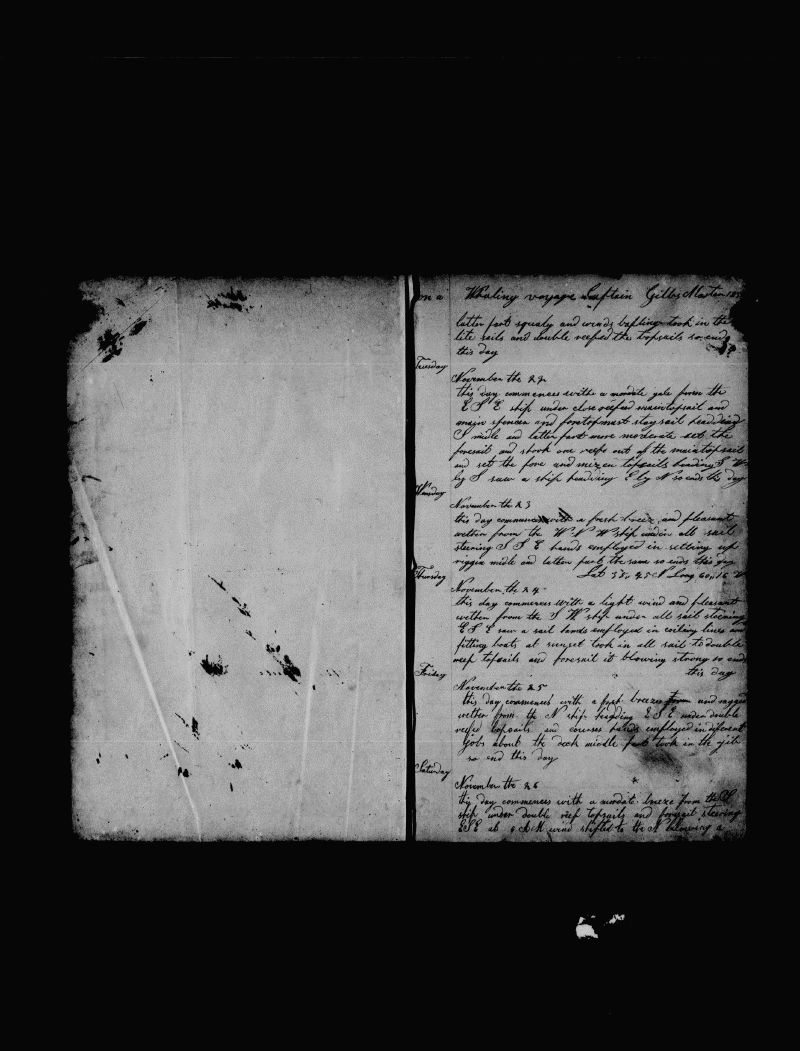 on a Whaling voyage Captain Gibbs Master
latter part squaly and winds baffling took in the
lite sails and double reefed the topsails so ends
this day
Tuesday
November the 22
this day commences withe a modate gale from the
E S E ship under close reefed maintopsail and
main spencer and foretopmast staysail heading
S midle and latter part more moderate set the
foresail and shook one reefe out of the maintopsail
and set the fore and mizen topsails heading S W
by S saw a ship heading E by N so ends this day
Wensday
November the 23
this day commences with a fresh breez and pleasant
wether from the W N W ship under all sail
steering S S E hands employed in setting up
riggin midle and latter part the same so ends this day
Lat 38, 45 N Long 60, 16 W
Thursday
November the 24
this day commences with a light wind and pleasant
wether from the S W ship under all sail steering
E S E saw a sail hands employed in coiling lines and
fitting boats at sunset took in all sail to double
reef topsails and foresail it blowing strong so ends
this day
Friday
November the 25
this day commences with a fresh breeze from and ragged
wether from the N ship heading E S E under double
reefed topsails and courses hands employed in diferent
jobs about the deck middle part took in the jib
so end this day
Saturday
November the 26
this day commences with a modate breeze from the
ship under double reef topsails and foresail steering
ESE at 6 A M wind shifted to the N blowing a